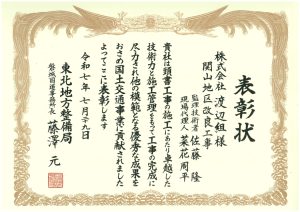 表彰状
株式会社 渡辺組様
関山地区改良工事
監理技術者 佐藤 隆
現場代理人 菜花周平
貴社は頭書工事の施工にあたり卓越した
技術力と施工管理をもって工事の完成に
尽力され他の模範となる優秀な成果を
おさめ国土交通事業に貢献されました
よってここに表彰します
令和七年七月二十九日
東北地方整備局
磐城国道事務所長 藤澤 元